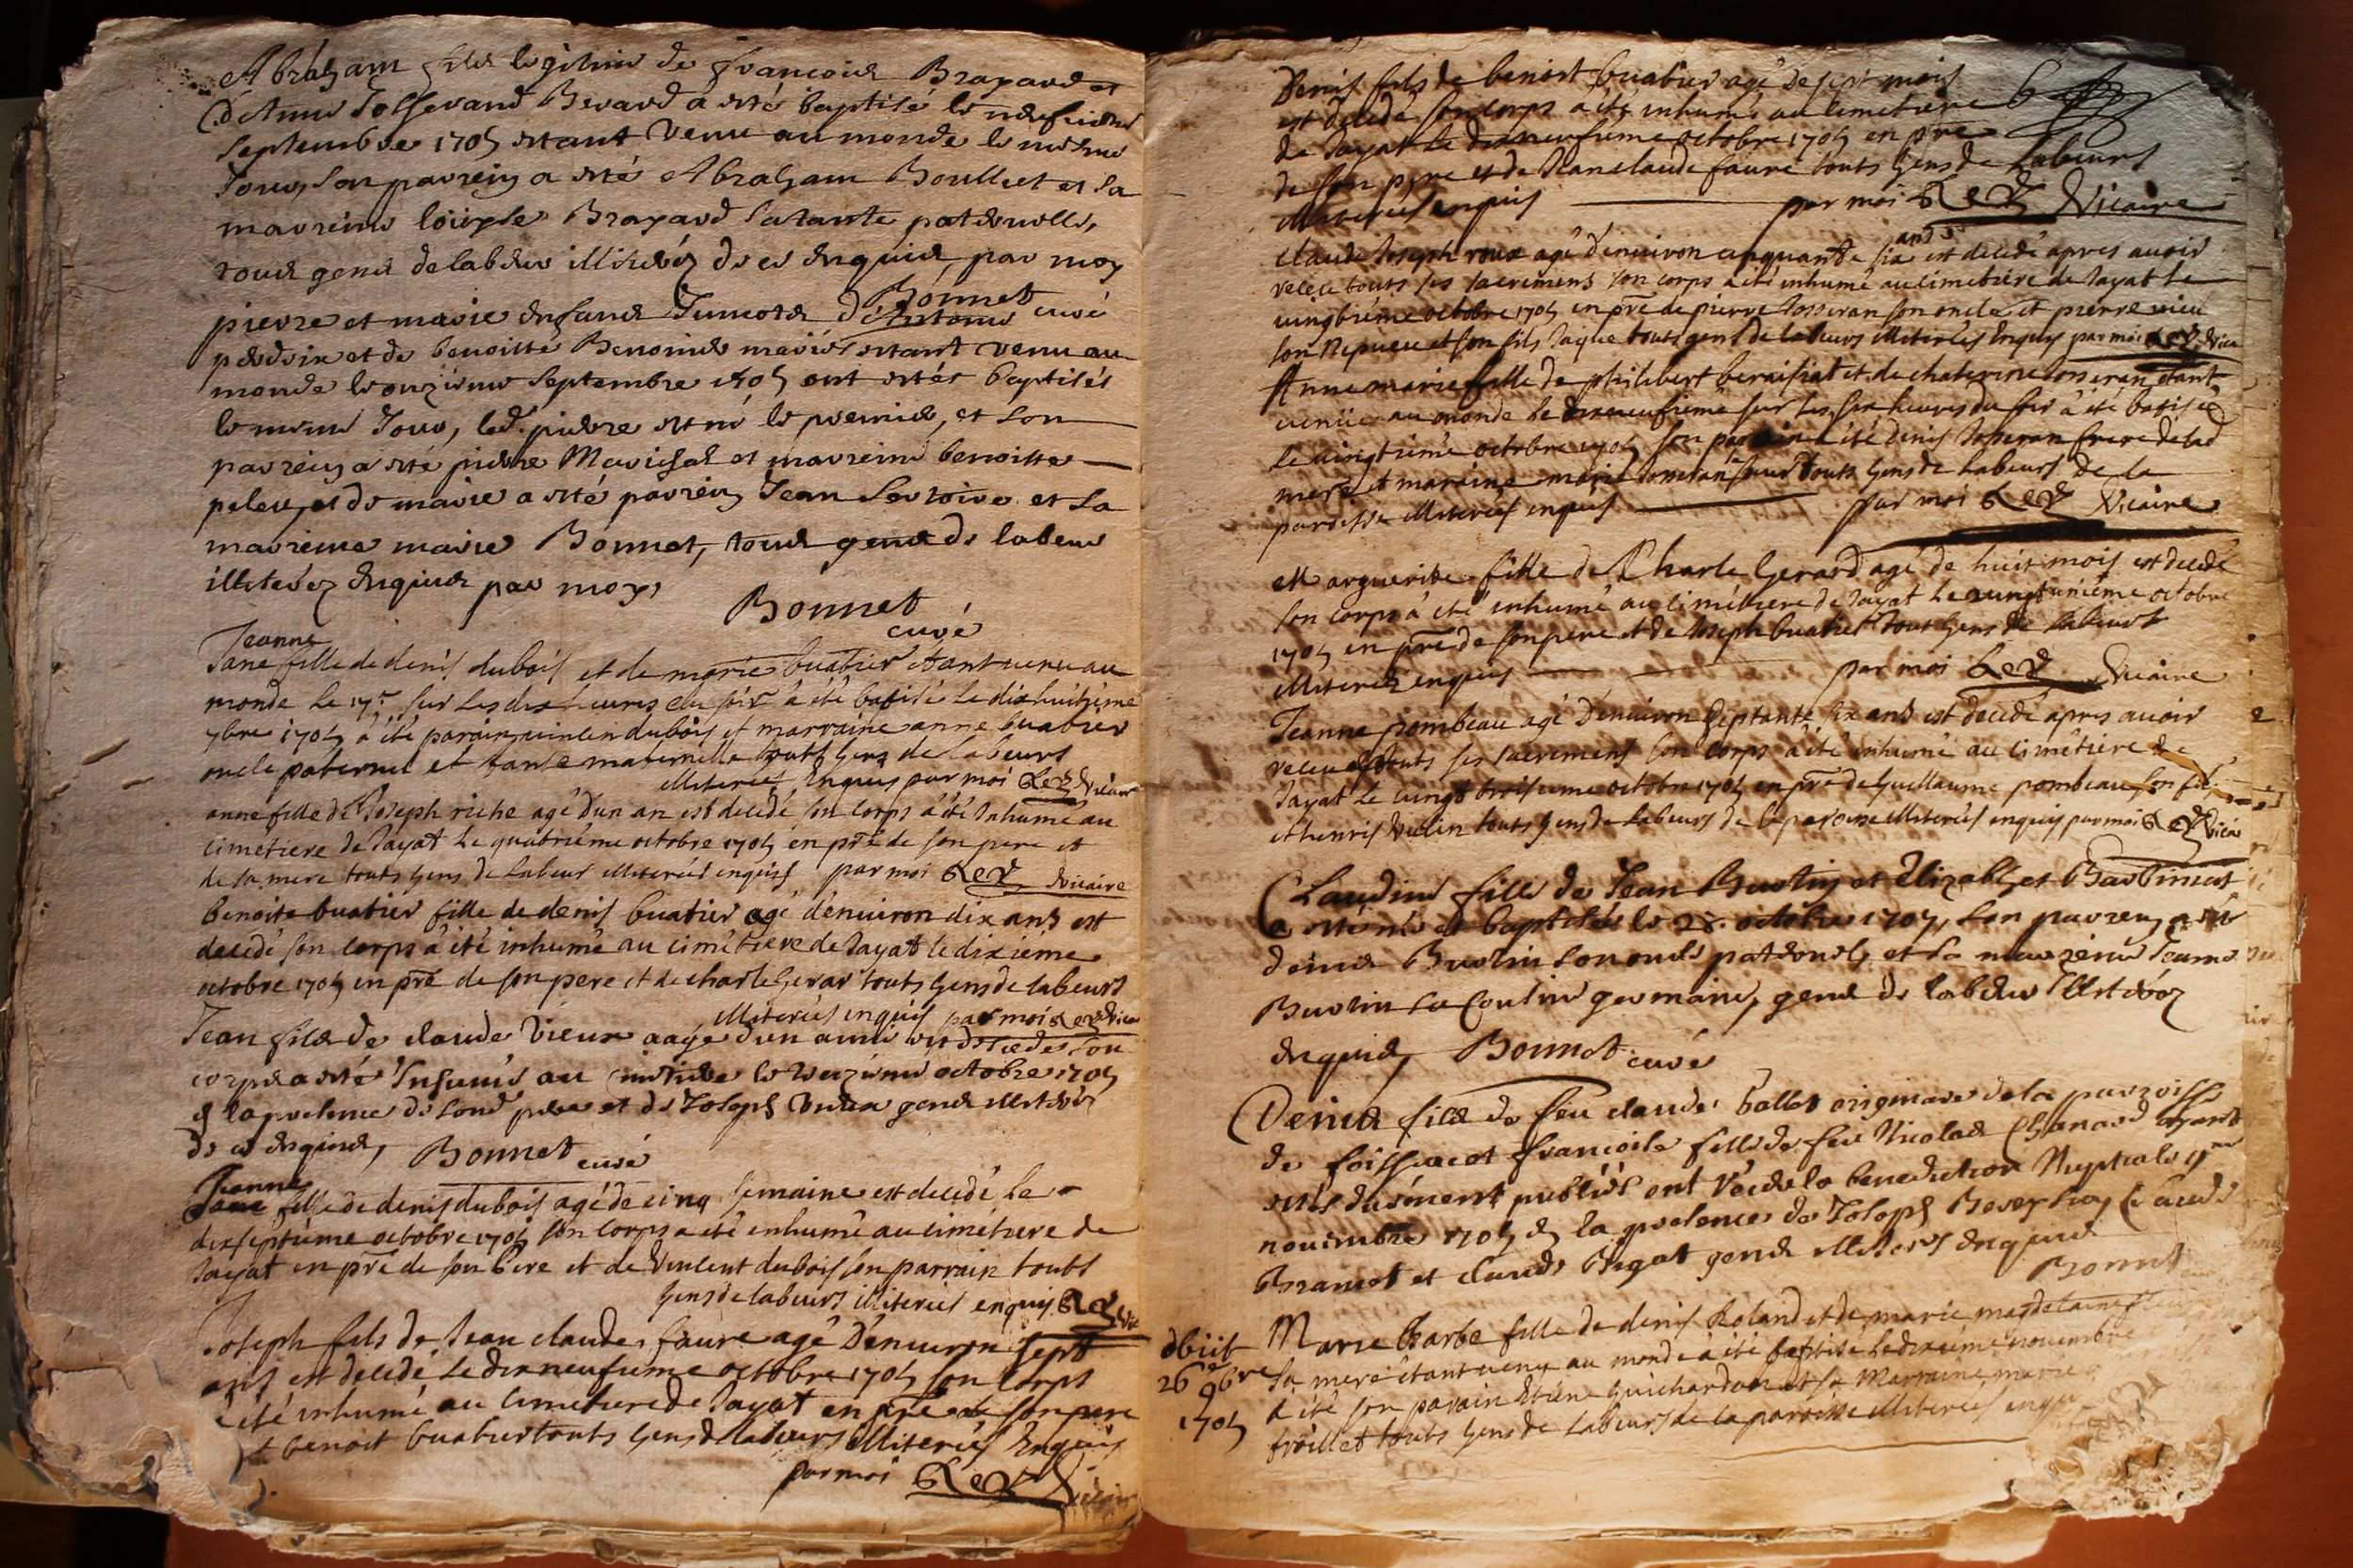 Abraham fils legitime de francois Brayard et
d'Anne Josserand Berard a esté baptisé le neufvieme
septembre 1705 estant venu au monde le mesme
Jour, son parrein a esté Abraham Boullet et sa
marreine Brayard sa tante paternelle,
tous gens de labeur illiterez de ce enquis, par moy
Bonnet curé
pierre et marie enfans Jumots d'Antoine
et de benoitte mariés estant venu au
monde le onzieme septembre 1705 ont estés baptisés
le mesme Jour, led. pierre est né le premier, et son
parrein a esté pierre Marichal et marreine benoitte
peleu, et de marie a esté parrein Jean et sa
marreine marie Bonnet, tous gens de labeur
illiterez enquis par moy,
Bonnet
curé
Jeanne
Jane fille de denis dubois et de marie buatier étant venu au
monde le 17e sur les dix heures du soir a été batisé le dixhuitieme
7bre 1705 a été parain vincen dubois et marraine anne buatier
oncle paternel et tante maternelle touts gens de labeurs
illiteriés enquis par moi Rey vicaire
anne fille de Joseph riche agé d'un an est decedé son corps a été Inhumé au
cimetiere de Jayat le quatrieme octobre 1705 en pre de son pere et
de sa mere touts gens de labeur illiteriés enquis par moi Rey vicaire
benoite buatier fille de denis buatier agé d'enuiron dix ans est
decedé son corps a été inhumé au cimetiere de Jayat le dixieme
octobre 1705 en pre de son pere et de charle Gerar touts gens de labeurs
illiteriés enquis par moi Rey vicai
Jean fils de claude Vieux aagé d'un année est decedé son
corps a esté Inhumé au cimetiere le octobre 1705
en la presence de sond. pere et de Joseph Vieux gens illiterés
de ce enquis, Bonnet curé
Jeanne
Jane fille de denis dubois agé de cinq semaine est decedé le
dixseptieme octobre 1705 son corps a été inhumé au cimetiere de
Jayat en pre de son pere et de vincent dubois son parrain touts
gens de labeurs illiteriés enquis Rey vic
Joseph fils de Jean claude faure agé d'enuiron sept
ans est decedé le dixneufieme octobre 1705 son corps
a été inhumé au cimetiere de Jayat en pre de son pere
et benoit buatier touts gens de labeurs illiteriés enquis
par moi Rey vicaire
Denis fils de benoit buatier agé de sept mois
est decedé son corps a été inhumé au cimetiere
de Jayat le dixneufieme octobre 1705 en pre
de son pere et de Jean claude faure touts gens de labeurs
illiteriés enquis par moi Rey Vicaire
claude Joseph roux agé d'enuiron cinquante six ans est decedé apres auoir
receu touts ses sacremens son corps a été inhumé au cimetiere de Jayat le
uingtieme octobre 1705 en pre de pierre Josseran son oncle et pierre uieu
son Nepueu et son fils Jaque touts gens de labeurs illiteriés enquis par moi Rey vicai
Anne marie fille de philibert beraisiat et de chaterine Josseran étant
uenüe au monde le dixneufieme sur les six heures du soir a été batisée
le uingtieme octobre 1705 son parrain a été denis Josseran frere de lad
mere et maraine marie touts gens de labeurs de la
paroisse illiteriés enquis par moi Rey Vicaire
Marguerite fille de Charle Gerard agé de huit mois est decedé
son corps a été inhumé au cimetiere de Jayat le uingtunieme octobre
1705 en pre de son pere et de Joseph buatier touts gens de labeurs
illiteriez enquis par moi Rey Vicaire
Jeanne pombeau agé d'enuiron septante six ans est decedé apres auoir
receu touts ses sacremens son corps a été inhumé au cimetiere de
Jayat le uingt troisieme octobre 1705 en pre de Guillaume pombeau son fils
et henris vulin touts gens de labeurs de la paroisse illiteriés enquis par moi Rey Vicai
Claudine fille de Jean Burtin et Elizabhet Barbimet
a esté née et baptisée le 28. octobre 1705, son parrein a esté
denis Burtin son oncle paternel, et sa marreine Jeanne
Burtin sa cousine germaine, gens de labeur Illiterez
enquis, Bonnet curé
Denis fils de feu claude ballet originaire de la parroisse
de foissiat et francoise fille de feu Nicolas Chanard ayant
estés duement publiés ont receu la benediction Nuptiale 9me
nouembre 1705 en la presence de Joseph Claude
et claude Pigat gens illiterés enquis
Bonnet
Marie barbe fille de denis Roland et de marie magdelaine
sa mere étant uenu au monde a été batisé le dixieme nouembre
a été son parain Etiene Guichardon et sa Marraine marie
froillet touts gens de labeurs de la paroisse illiteriés enqui
obiit
26e 9bre
1705